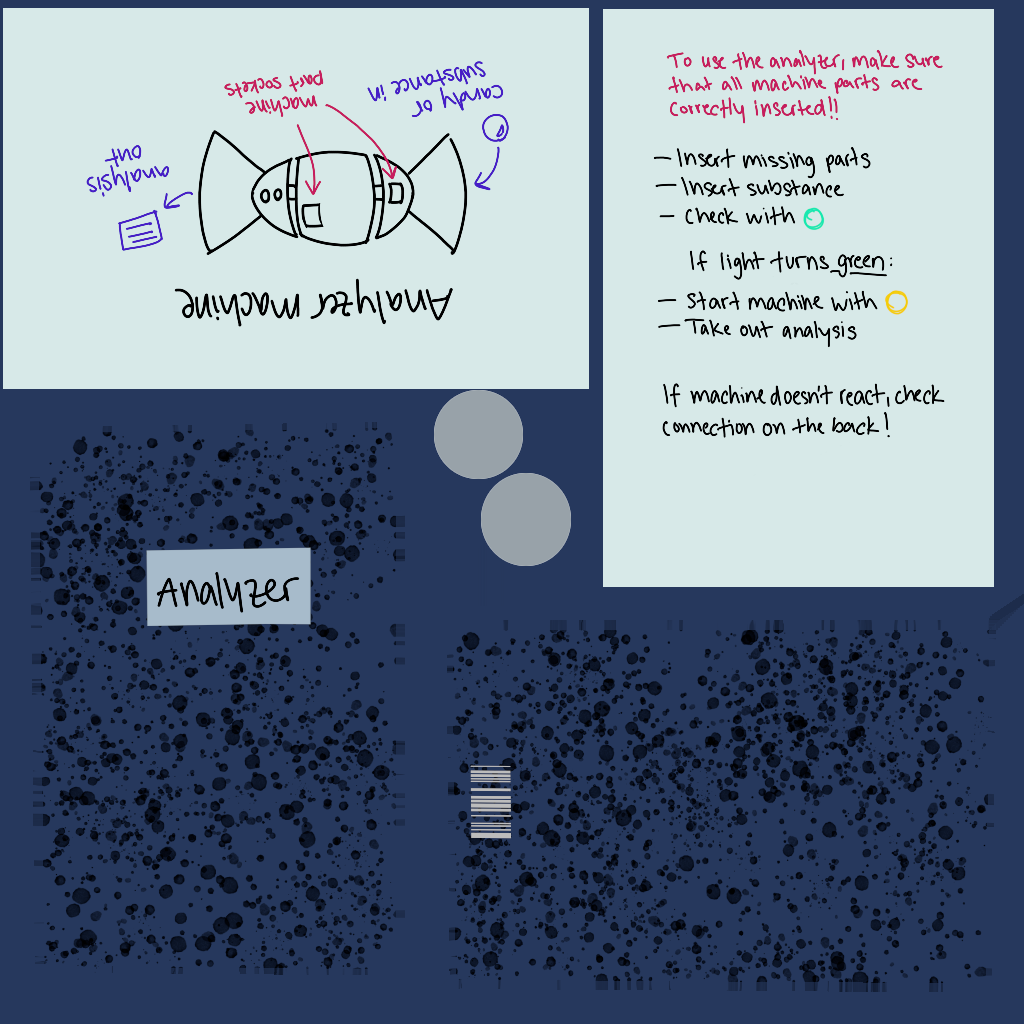 Analyzer machine
analysis
out
machine
part sockets
candy or
substance in
To use the analyzer, make sure
that all machine parts are
correctly inserted!!
- Insert missing parts
- Insert substance
- Check with
If light turns green:
- Start machine with
- Take out analysis
If machine doesn't react, check
connection on the back!
Analyzer